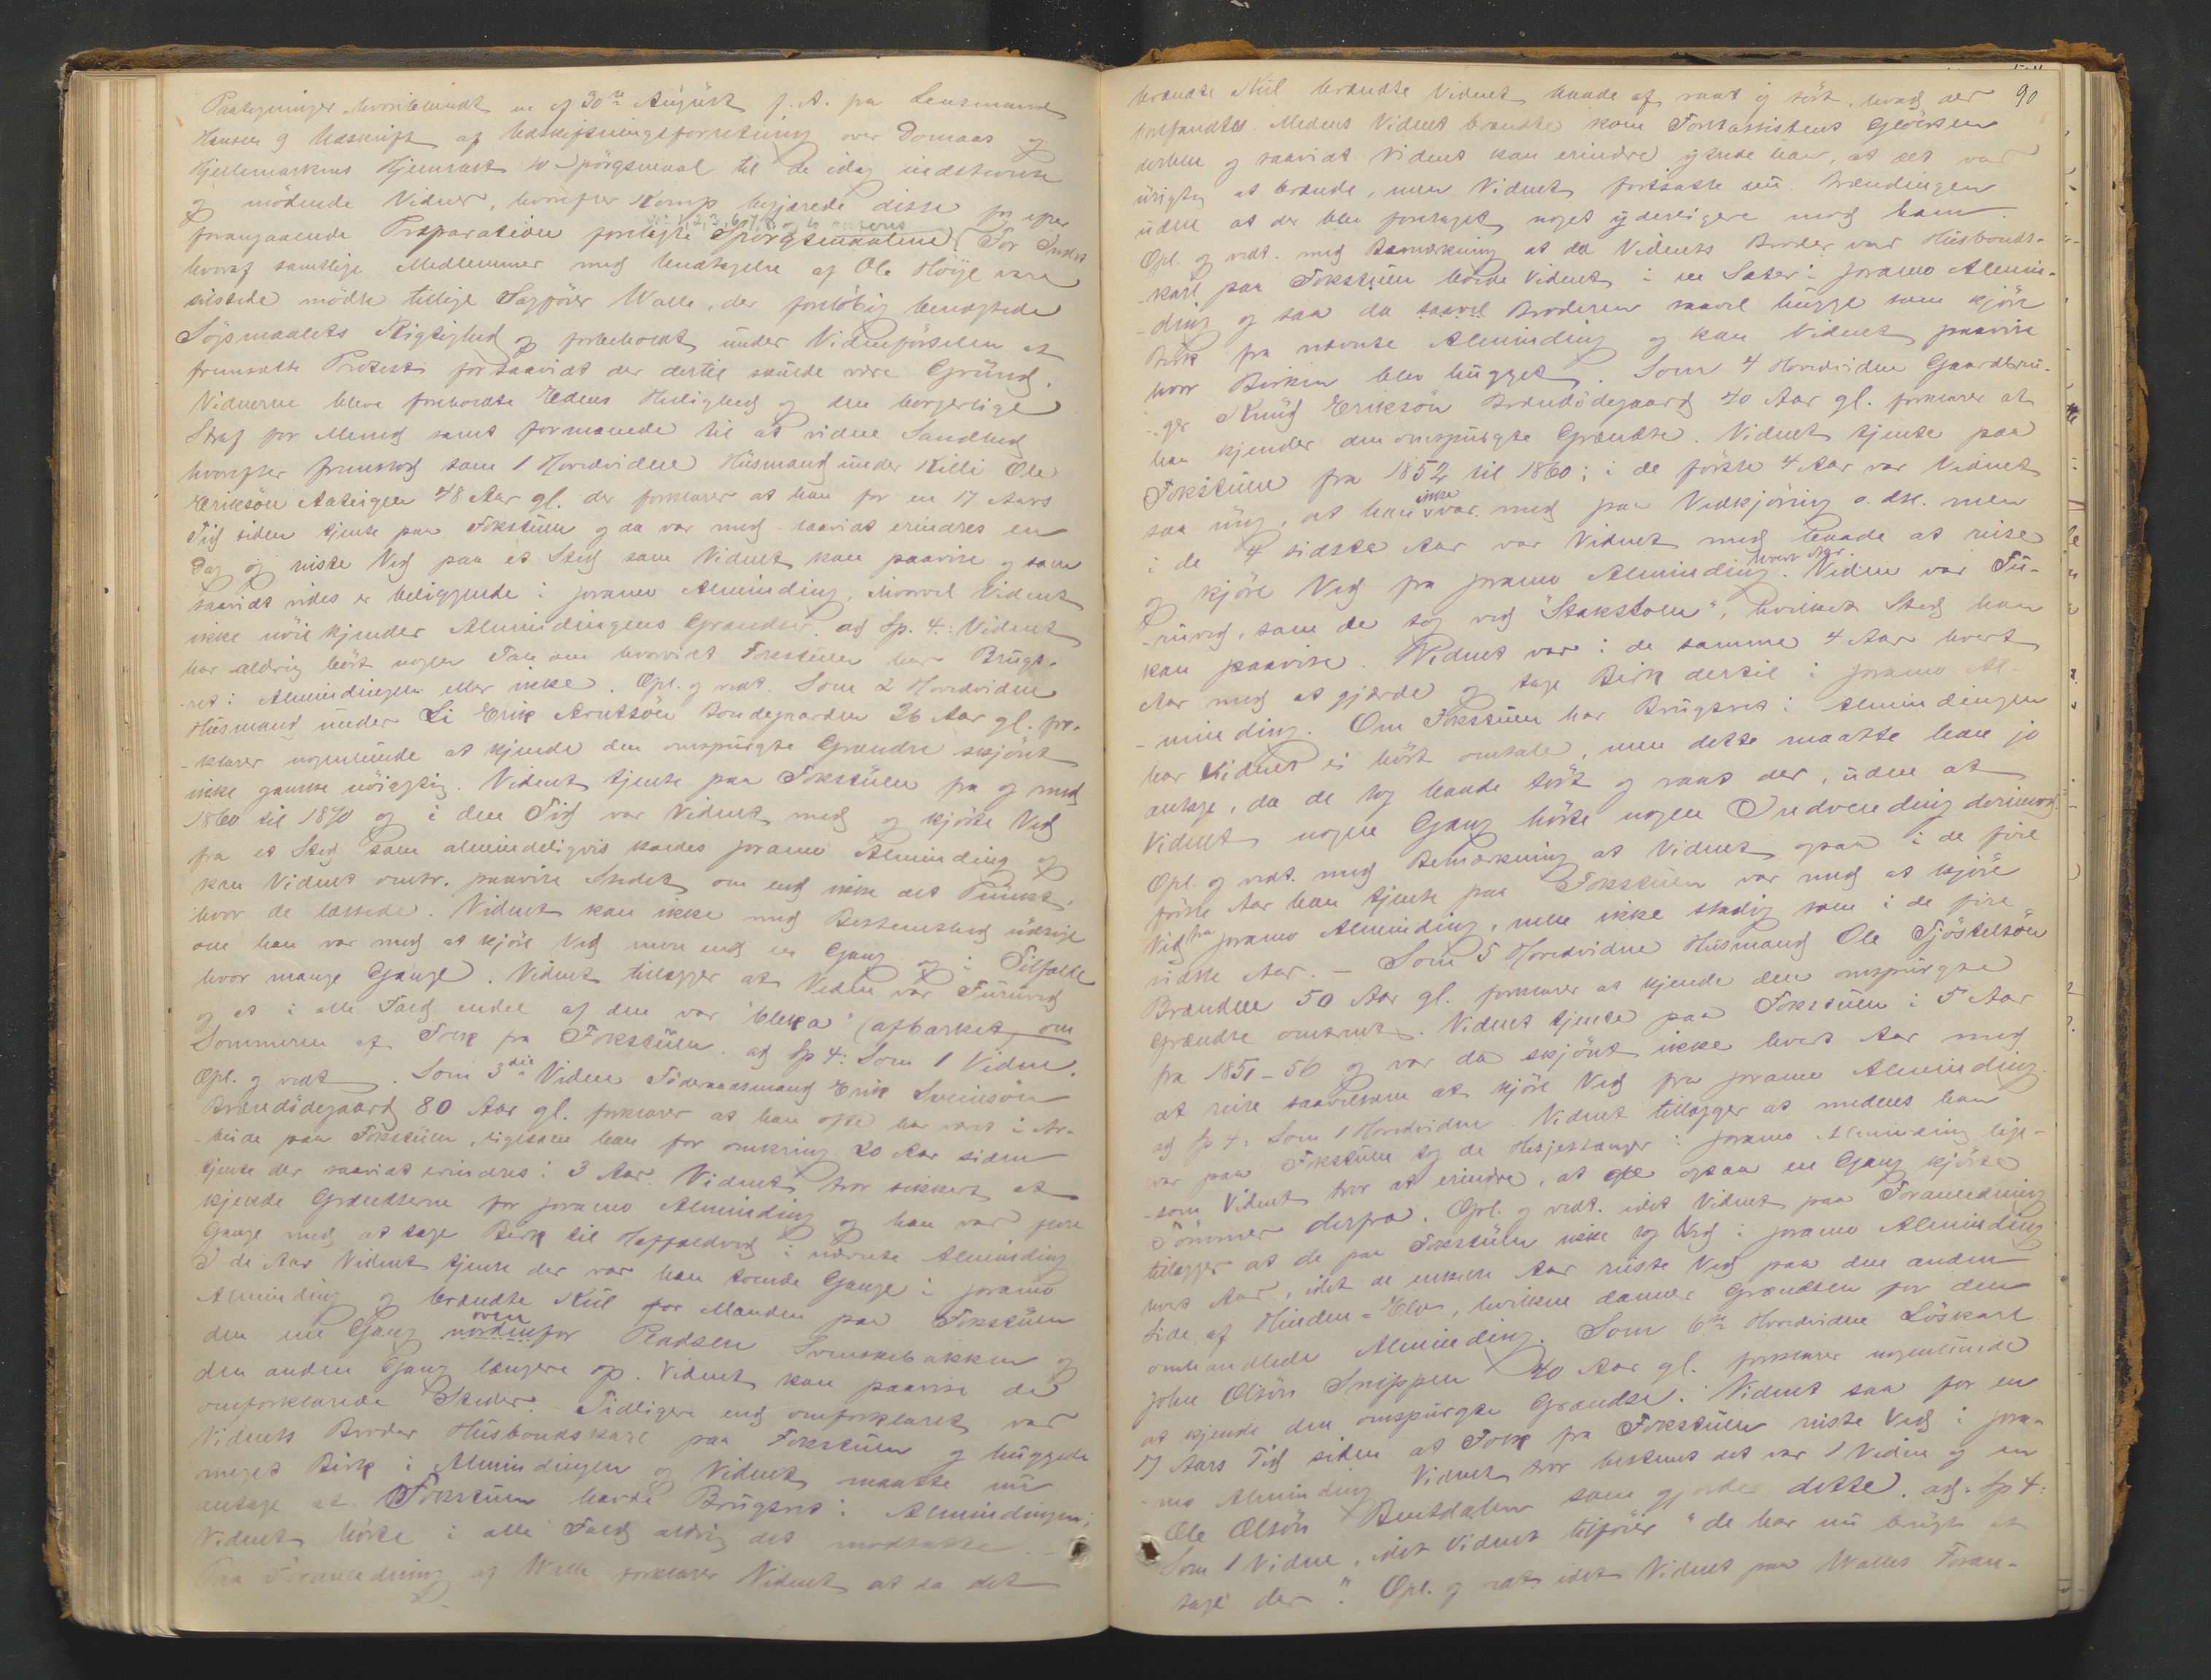 Paategninger hvoriblandt en af 30te August f. A. fra Lensmand
Hansen og Udskrift af Udskiftningsforretning over Domaas og
Hjellemarkens Hjemrast 10 Spörgsmaal til de idag indstevnte
og mödende Vidner, hvorefter Komp. begjærede disse for efter
No 1, 2, 3, 6, 7, 8 og 10
forangaaende Præparation forelagte Spörgsmaalene. For
hvoraf samtlige Medlemmer med Undtagelse af Ole Höije vare
tilstede mödte tillige Sagförer Walle, der foreløbig benægtede
Sögsmaalets Rigtighed og forbeholdt under Vidneförselen at
fremsætte Protest forsaavidt der dertil skulde være Grund.
Vidnerne bleve foreholdte Edens Hellighed og den borgerlige
Straf for Mened samt formanede til at vidne Sandhed
hvorefter fremstod som 1 Hovedvidne Husmand under Killi Ole
Eriksön Aateigen 48 Aar gl. der forklarer at han for en 17 Aars
Tid siden tjente paa Fokstuen og da var med saavidt erindres en
Dag og reiste Ved paa et Sted som Vidnet kan paavise og som
saavidt vides er beliggende i Joramo Alminding, hvorvel Vidnet
ikke nöie kjender Almindingens Grændser. ad Sp. 4: Vidnet
har aldrig hört nogen Tale om hvorvidt Fokstuen har Brugs-
-ret i Almindingen eller ikke. Opl. og vedt. Som 2 Hovedvidne
Husmand under Li Erik Arntsön Bondegaarden 36 Aar gl. for-
-klarer nogenlunde at kjende den omspurgte Grændse skjönt
ikke ganske nöiagtig. Vidnet tjente paa Fokstuen fra og med
1860 til 1870 og i den Tid var Vidnet med og kjörte Ved
fra et Sted som almindeligvis kaldes Joramo Alminding og
kan Vidnet omtr. paavise Stedet om end ikke det Punkt,
hvor de læssede. Vidnet kan ikke med Bestemthed udsige
om han var med at kjöre Ved mere end en Gang og i Tilfælde
hvor mange Gange. Vidnet tillægger at Veden var Furuved
og at i alle Fald endel af den var "bleka" (afbarket om
Sommeren af Folk fra Fokstuen. ad Sp 4: Som 1 Vidne.
Opl. og vedt. Som 3die Vidne Föderaadsmand Erik Sveinsön
Brændödegaard 80 Aar gl. forklarer at han ofte har været i Ar-
-beide paa Fokstuen, ligesom han for omkring 20 Aar siden
tjente der saavidt erindres i 3 Aar. Vidnet tror sikkert at
kjende Grændserne for Joramo Alminding og han var flere
Gange med at tage Birk til i nævnte Alminding
I de Aar Vidnet tjente der var han tvende Gange i Joramo
Alminding og brændte Kul for Manden paa Fokstuen
oven
den ene Gang nordenfor Pladsen Svenskebakken og
den anden Gang længere op. Vidnet kan paavise de
omforklarede Steder. Tidligere end omforklaret var
Vidnets Broder Husbondskarl paa Fokstuen og huggede
meget Birk i Almindingen og Vidnet maatte nu
antage at Fokstuen havde Brugsret i Almindingen;
Vidnet hörte i alle Fald aldrig det modsatte. -
Paa Foranledning af Walle forklarer Vidnet at da det
90
brændte Kul brændte Vidnet baade af raat og tört, hvad der
forefandtes. Medens Vidnet brændte kom Forstassistent Gløersen
derhen og saavidt Vidnet kan erindre ytrede han, at det var
urigtig at brænde, men Vidnet fortsatte nu Brændingen
uden at der blev foretaget noget yderligere mod ham.
Opl. og vedt. med Bemærkning at da Vidnets Broder var Husbonds-
-karl paa Fokstuen boede Vidnet i en Sæter i Joramo Almin-
-ding og saa da saavel Broderen saavel hugge som kjöre
Birk fra nævnte Alminding og kan Vidnet paavise
hvor Birken blev hugget. Som 4 Hovedvidne Gaardbru-
-ger Knud Eriksön Brændödegaard 40 Aar gl. forklarer at
han kjender den omspurgte Grændse. Vidnet tjente paa
Fokstuen fra 1852 til 1860; i de förste 4 Aar var Vidnet
ikke
saa ung, at han var med paa Vedkjöring o. dsl. men
i de 4 sidste Aar var Vidnet med baade at reise
hvert Aar.
og kjöre Ved fra Joramo Alminding. Veden var Fu-
-ruved, som de tog ved "Stakstoen", hvilket Sted han
kan paavise. Vidnet var i de samme 4 Aar hvert
Aar med at gjærde og tage Birk dertil i Joramo Al-
-minding. Om Fokstuen har Brugsret i Almindingen
har Vidnet ei hört omtale, men dette maatte han jo
antage, da de tog baade tört og raat der, uden at
Vidnet nogen Gang hörte nogen Indvending derimod
Opl. og vedt. med Bemærkning at Vidnet ogsaa i de fire
förste Aar han tjente paa Fokstuen var med at kjöre
Ved fra Joramo Alminding, men ikke stadig som i de fire
sidste Aar. - Som 5 Hovedvidne Husmand Ole Tjöstelsön
Brændlien 50 Aar gl. forklarer at kjende den omspurgte
Grændse omtrent. Vidnet tjente paa Fokstuen i 5 Aar
fra 1851-56 og var da skjönt ikke hvert Aar med
at reise saavelsom at kjöre Ved fra Joramo Alminding.
ad Sp 4: Som 1 Hovedvidne. Vidnet tillægger at medens han
var paa Fokstuen tog de Hesjestænger i Joramo Alminding lige-
-som Vidnet tror at erindre, at de ogsaa en Gang kjörte
Tömmer derfra. Opl. og vedt. idet Vidnet paa Foranledning
tillægger at de paa Fokstuen ikke tog Ved i Joramo Alminding
hvert Aar, idet de enkelte Aar reiste Ved paa den anden
Side af Hinden-Elv, hvilken danner Grændsen for den
omhandlede Alminding. Som 6te Hovedvidne Löskarl
John Olsön Snippen 40 Aar gl. forklarer nogenlunde
at kjende den omspurgte Grændse. Vidnet saa for en
17 Aars Tid siden at Folk fra Fokstuen reiste Ved i Jora-
-mo Alminding. Vidnet tror bestemt det var 1 Vidne og en
Ole Olsön Bentdalen som gjorde dette. ad. Sp 4:
Som 1 Vidne, idet Vidnet tilföier "de har nu brugt at
tage der". Opl. og vedt. idet Vidnet paa Walles Foran-